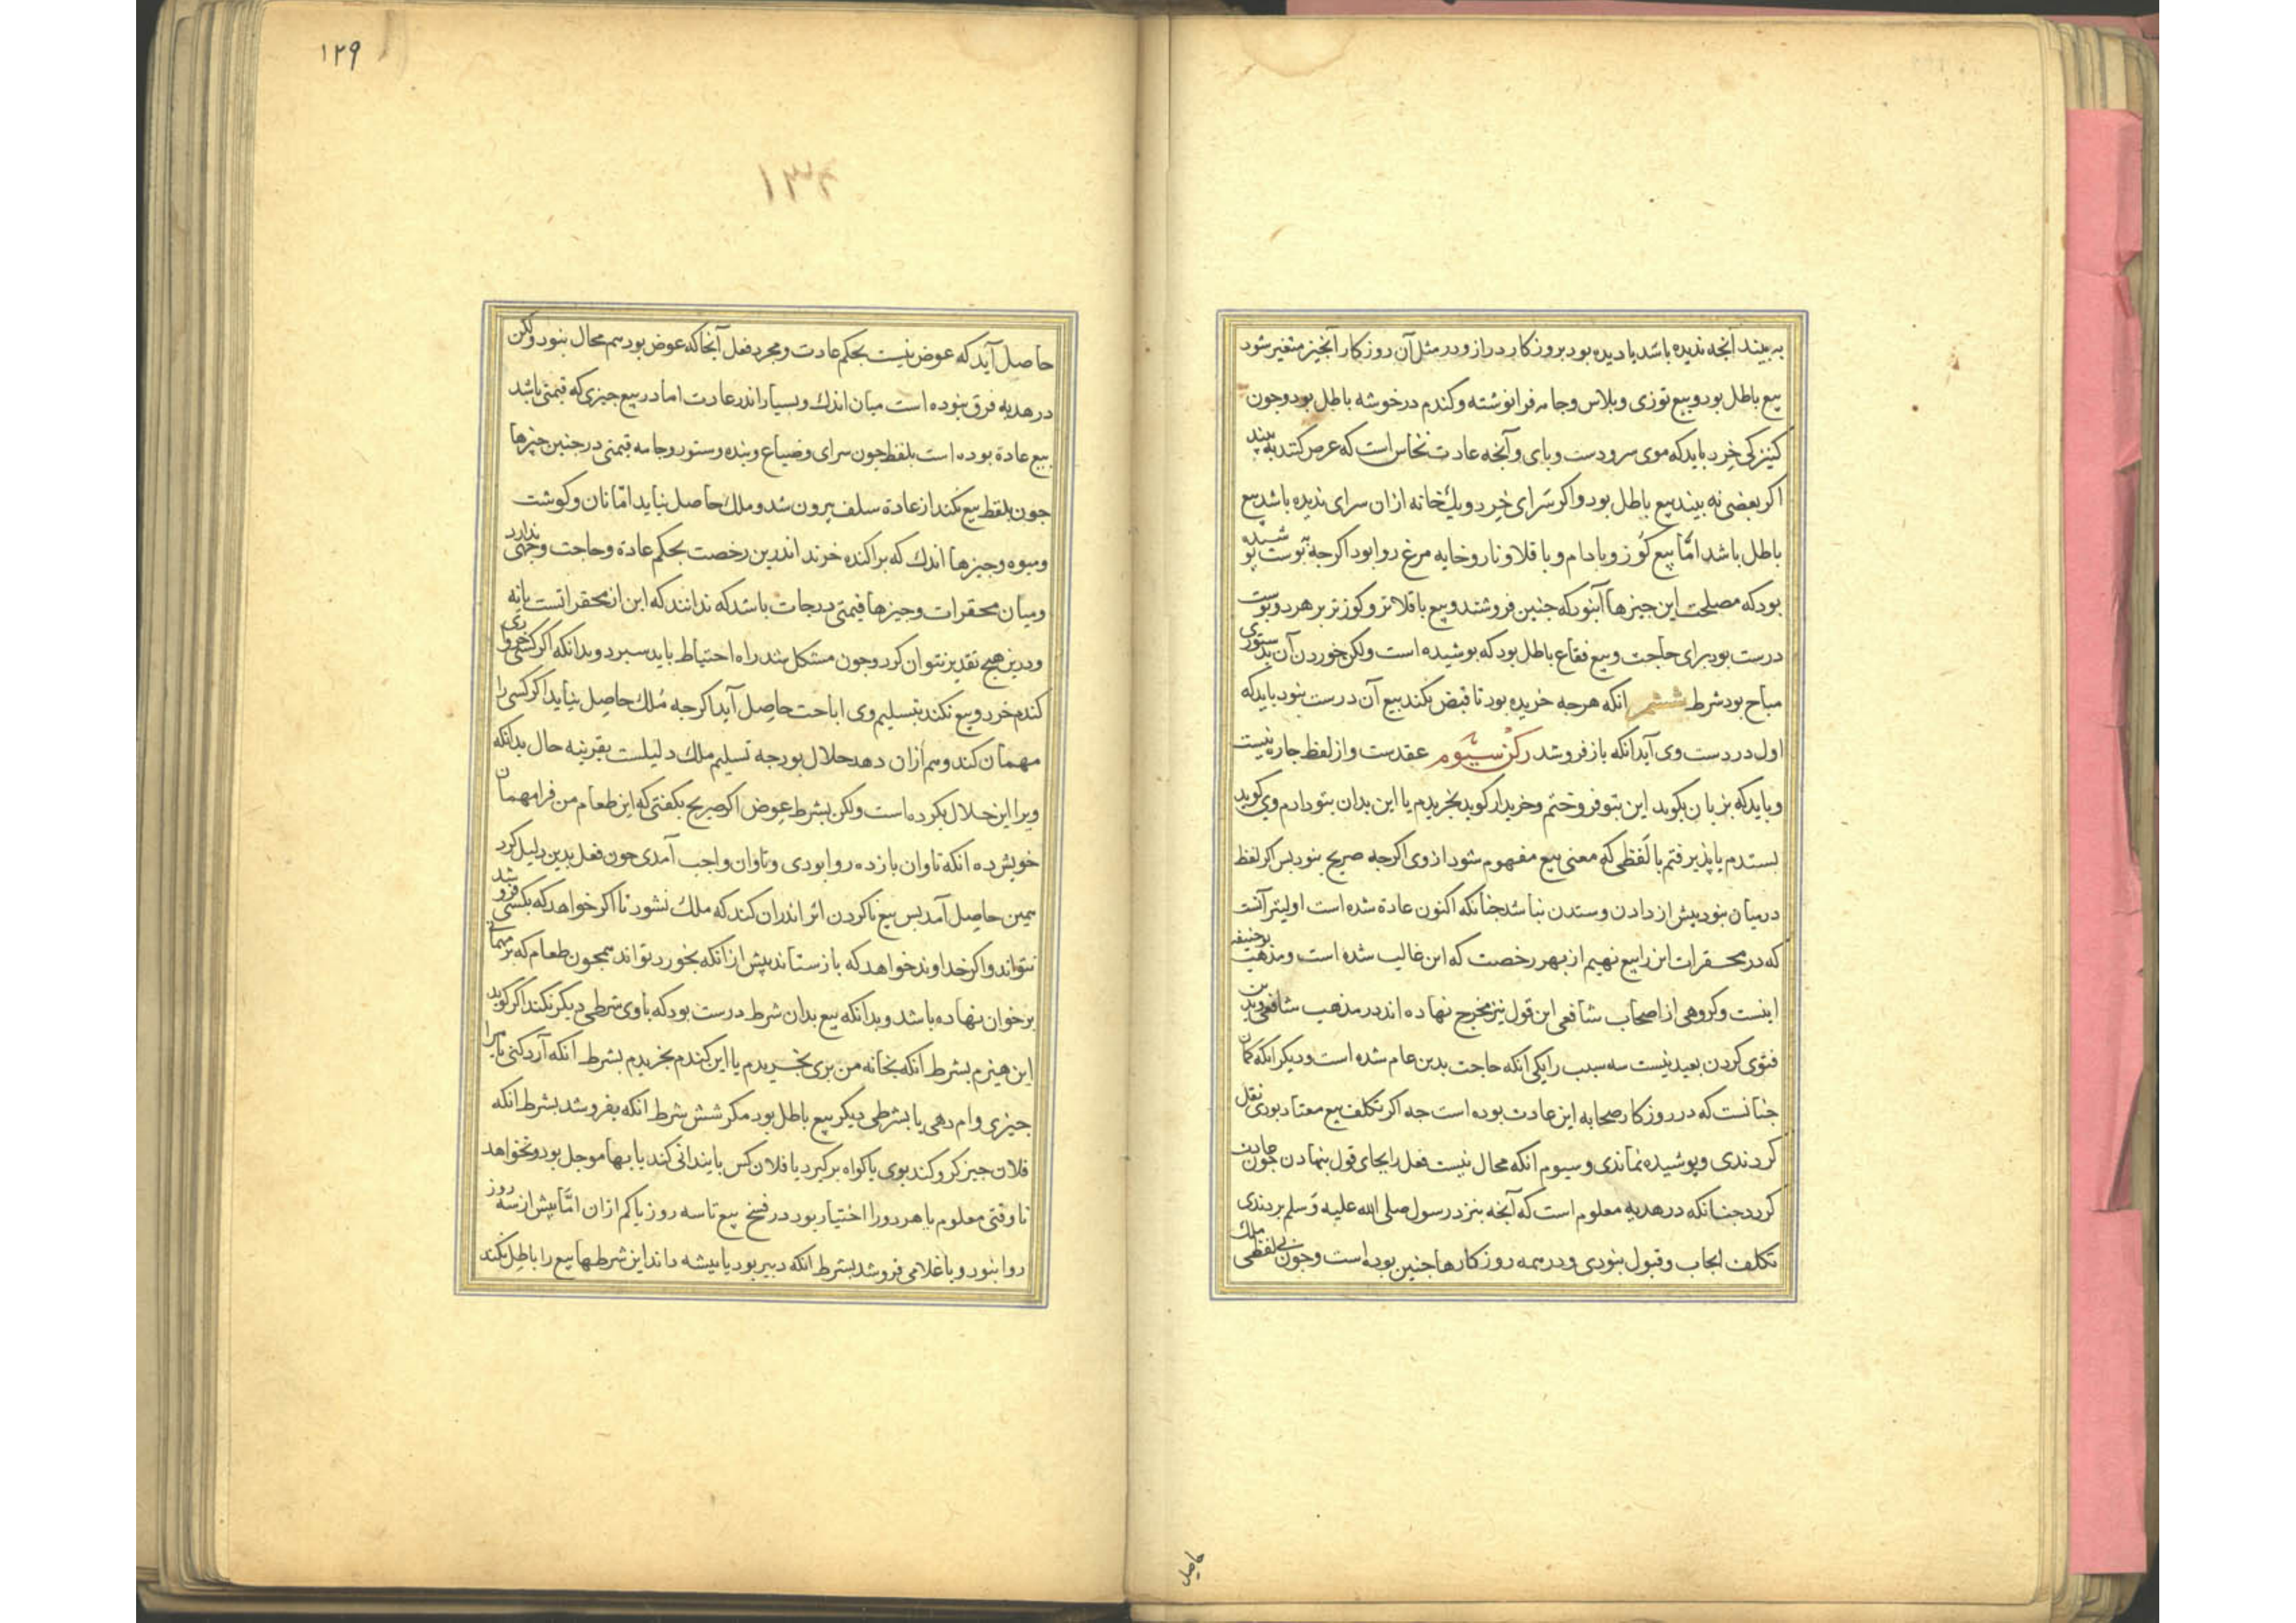 به بیند آنجه ندیده باشد یا دیده بود بروزکار دراز و در مثل آن روزکار آنجیز متغیر شود
بیع باطل بود و بیع توزی و بلاس و جامه فرا نوشته و کندم در خوشه باطل بود و جون
کنیزکی خرد باید که موی سر و دست و بای و آنجه عادت نخاس است که عرض کند به بیند
اکر بعضی نه بیند بیع باطل بود و اکر سرای خرد و یک خانه ازان سرای ندیده باشد بیع
باطل باشد امّا بیع کوز و بادام و باقلا و نار و خایه مرغ روا بود اکرجه به بوست بوشیده
بود که مصلحت این جیزها آنبود که جنین فروشند و بیع باقلا تر و کوز تر بر هر دو بوست
درست بود برای حاجت و بیع فقاع باطل بود که بوشیده است ولکن خوردن آن بدستوری
مباح بود شرط ششم انکه هرجه خریده بود تا قبض نکند بیع آن درست نبود باید که
اول در دست وی آید انکه باز فروشد رکن سیوم عقدست و از لفظ جاره نیست
و باید که بزبان بکوید این بتو فروختم و خریدار کوید بخریدم یا این بدان بتو دادم وی کوید
بستدم یا پذیرفتم یا لفظی که معنی بیع مفهوم شود ازوی اکرجه صریح نبود بس اکر لفظ
در میان نبود بیش از دادن و ستدن نباشد جنانکه اکنون عادة شده است اولیتر آنست
که در محقرات این را بیع نهیم از بهر رخصت که این غالب شده است و مذهب بوحنیفه
اینست و کروهی از اصحاب شافعی این قول نیز مخرج نهاده اند در مذهب شافعی و بدین
فتوی کردن بعید نیست سه سبب را یکی انکه حاجت بدین عام شده است و دیکر انکه کمان
جنانست که در روزکار صحابه این عادت بوده است جه اکر تکلف بیع معتاد بودی نقل
کردندی و پوشیده نماندی و سیوم انکه محال نیست فعل را بجای قول نهادن جون عادت
کردد جنانکه در هدیه معلوم است که آنجه بنزد رسول صلی الله علیه وسلم بردندی
تکلف ایجاب و قبول نبودی و در همه روزکارها جنین بوده است و جون بی لفظی ملک
حاصل
١٢٩
حاصل آید که عوض نیست بحکم عادت و مجرد فعل آنجا که عوض بود هم محال نبود ولکن
در هدیه فرق نبوده است میان اندک و بسیار اندر عادت اما در بیع جیزی که قیمتی باشد
بیع عادة بوده است بلفظ جون سرای و ضیاع و بنده و ستور و جامه قیمتی در جنین جیزها
جون بلفظ بیع نکند از عادة سلف بیرون شد و ملک حاصل نیاید امّا نان و کوشت
و میوه و جیزها اندک که براکنده خرند اندرین رخصت بحکم عادة و حاجت وجهی دارد
و میان محقرات و جیزها قیمتی درجات باشد که ندانند که این از محقراتست یا نه
و درین هیج تقدیر نتوان کرد و جون مشکل شد راه احتیاط باید سبرد و بدانکه اکر کسی خرواری
کندم خرد و بیع نکند بتسلیم وی اباحت حاصل آید اکرجه ملک حاصل نیاید اکر کسی را
مهمان کند و هم ازان دهد حلال بود جه تسلیم ملک دلیلست بقرینه حال بدانکه
ویرا این حلال بکرده است ولکن بشرط عوض اکر صریح بکفتی که این طعام من فرا مهمان
خویش ده انکه تاوان باز ده روا بودی و تاوان واجب آمدی جون فعل بدین دلیل کرد
همین حاصل آمد بس بیع ناکردن اثر اندران کند که ملک نشود تا اکر خواهد که بکسی فروشد
نتواند و اکر خداوند خواهد که باز ستاند پیش از انکه بخورد تواند همجون طعام که در مهمانی
بر خوان نهاده باشد و بدانکه بیع بدان شرط درست بود که با وی شرطی دیکر نکند اکر کوید
این هیزم بشرط انکه بخانه من بری بخریدم یا این کندم بخریدم بشرط انکه آرد کنی یا مرا
جیزی وام دهی یا بشرطی دیکر بیع باطل بود مکر شش شرط انکه بفروشد بشرط انکه
فلان جیز کرو کند بوی یا کواه برکیرد یا فلان کس بایندانی کند یا بها موجل بود و نخواهد
تا وقتی معلوم یا هر دو را اختیار بود در فسخ بیع تا سه روز یا کم ازان امّا بیش از سه روز
روا نبود و یا غلامی فروشد بشرط انکه دبیر بود یا بیشه داند این شرطها بیع را باطل نکند